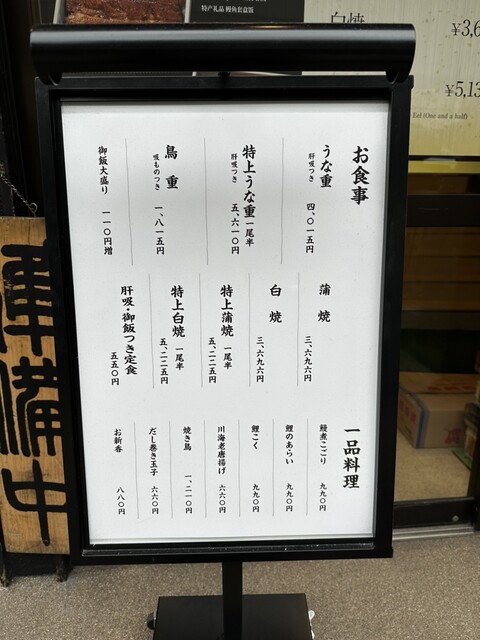 お食事
うな重
肝吸つき
四、〇一五円
特上うな重 一尾半
肝吸つき
五、六一〇円
鳥重
吸ものつき
一、八一五円
御飯大盛り
一一〇円増
蒲焼
三、六九六円
白焼
三、六九六円
特上蒲焼 一尾半
五、二二五円
特上白焼 一尾半
五、二二五円
肝吸・御飯つき定食
五五〇円
一品料理
鰻煮こごり
九九〇円
鯉のあらい
九九〇円
鯉こく
九九〇円
川海老唐揚げ
六六〇円
焼き鳥
一、二一〇円
だし巻き玉子
六六〇円
お新香
八八〇円
準備中
特产礼品 鳗鱼套盒饭
白焼
¥3,6
¥5,13
Eel (One and a half)